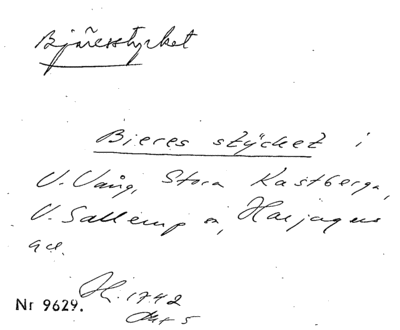 Bjäresstycket
Bieres stÿcket i
V. Vång, Stora Kastberga,
V. Sallerup s, Harjagers
hd.
Nr 9629. H. 1742
Akt 5